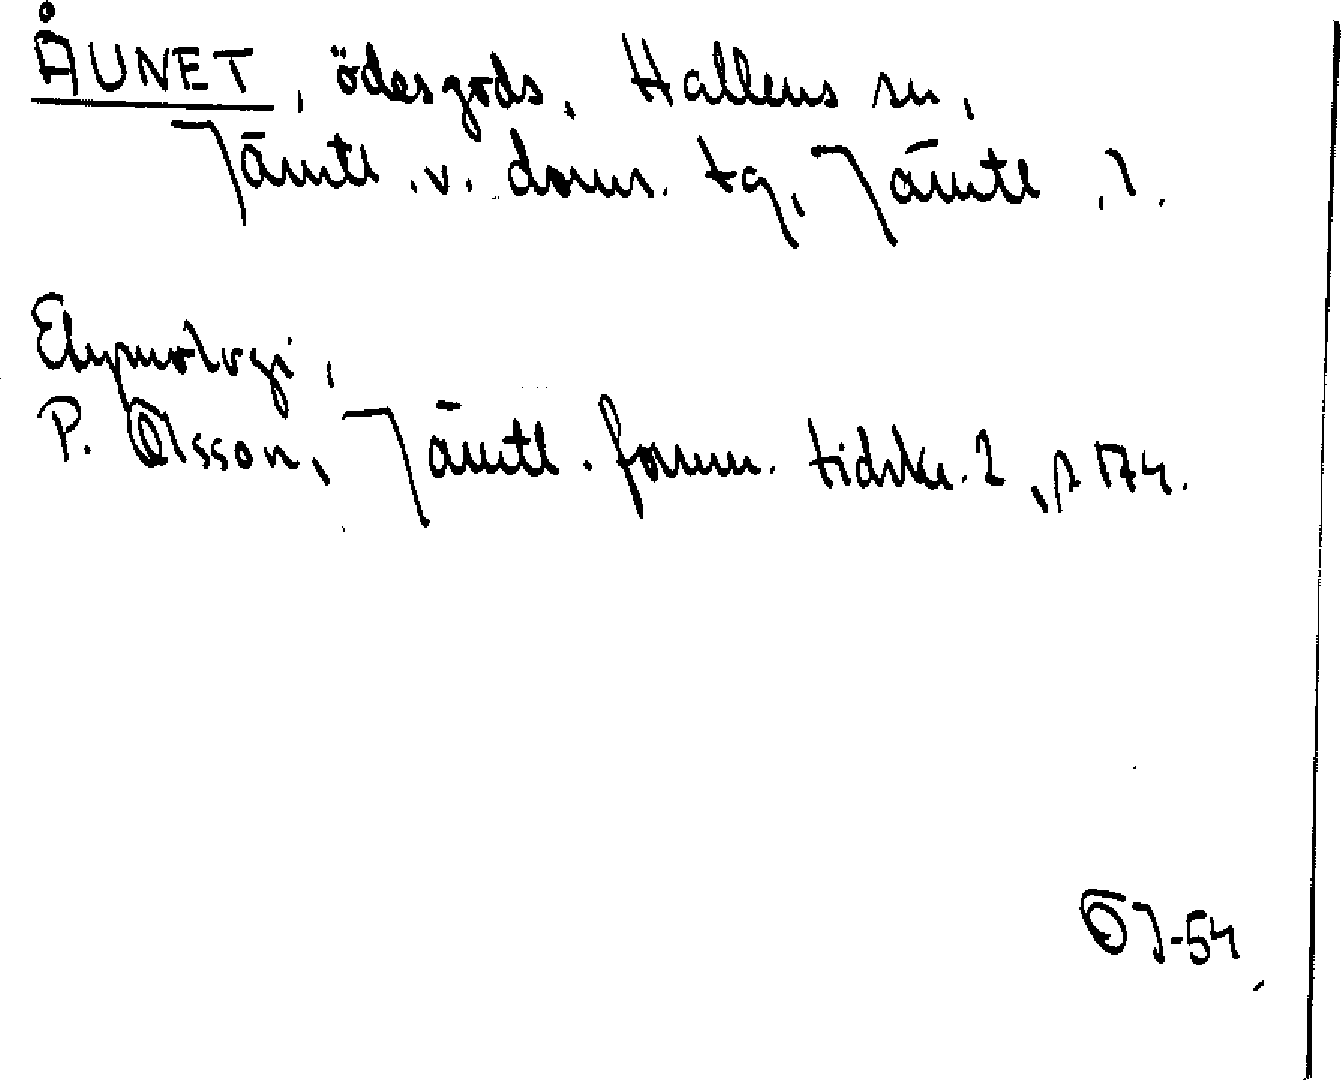 ÅUNET, ödesgods, Hallens sn,
Jämtl. v. doms. tg, Jämtl. l.
Etymologi,
P. Olsson, Jämtl. fornm. tidskr. 2, s 174.
ÖJ-54